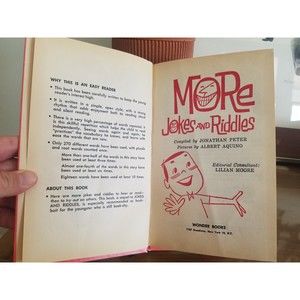 WHY THIS IS AN EASY READER
• This book has been carefully written to keep the young reader's interest high.
• It is written in a simple, open style, with a strong rhythm that adds enjoyment both to reading aloud and silent reading.
• There is a very high percentage of words repeated. It is this skillful repetition which helps the child to read independently. Seeing words again and again, he "practices" the vocabulary he knows, and learn with ease the words that are new.
• Only 270 different words have been used, with plurals and root words counted once.
More than one-half of the words in this story have been used at least
Almost one-half of the words in this story have been used at least
Eighteen words have been used at least 10 times.
ABOUT THIS BOOK
• Here are more jokes and riddles to hear or read— then to try out on others. This book, a sequel to JOKES AND RIDDLES, is especially recommended as bait for the youngster who is still book-shy.
MORe
Jokes AND Riddles
Compiled by JONATHAN PETER
Pictures by ALBERT AQUINO
Editorial Consultant:
LILIAN MOORE
WONDER BOOKS
1107 Broadway, New York 10, N.Y.